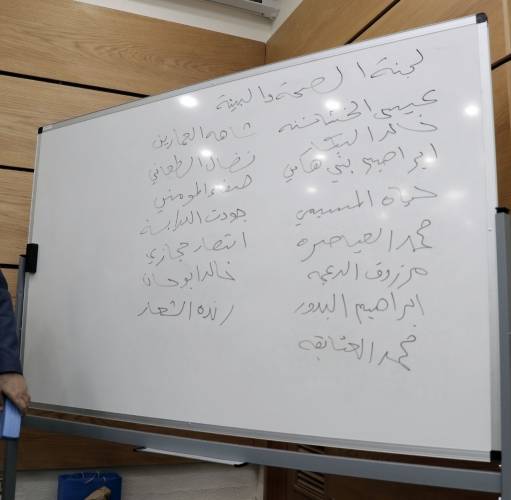 لجنة الصحة والبيئة
عيسى الخشاشنه
خالد البكار
ابراهيم بني هاني
حياة المسيمي
محمد العياصره
مرزوق الدعجه
ابراهيم البدور
محمد العتايقه
شاهه العمارين
نضال الطعاني
صفاء المومني
جودت الدرابسة
انتصار حجازي
خالد ابو حسان
رنده الشعار